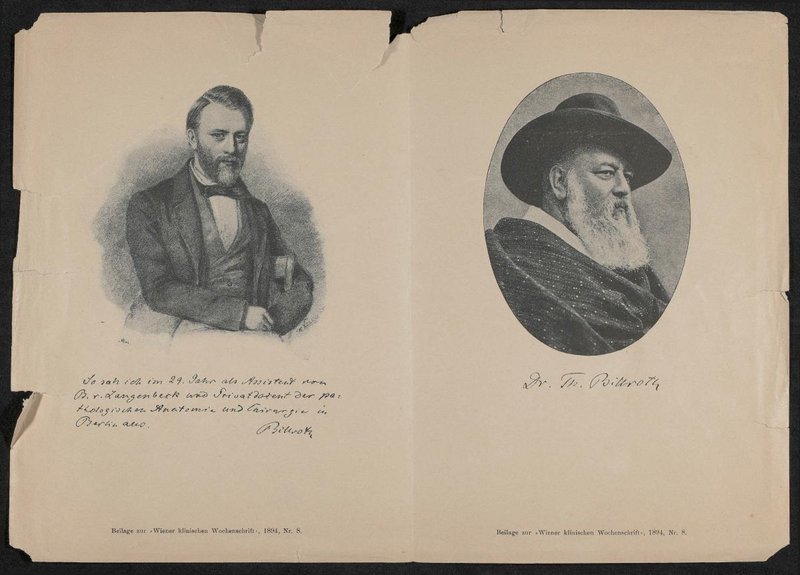 So sah ich im 29. Jahr als Assistent von
B. v. Langenbeck und Privatdocent der pa-
thologischen Anatomie und Chirurgie in
Berlin aus.
Billroth
Beilage zur »Wiener klinischen Wochenschrift«, 1894, Nr. 8.
Dr. Th. Billroth
Beilage zur »Wiener klinischen Wochenschrift«, 1894, Nr. 8.